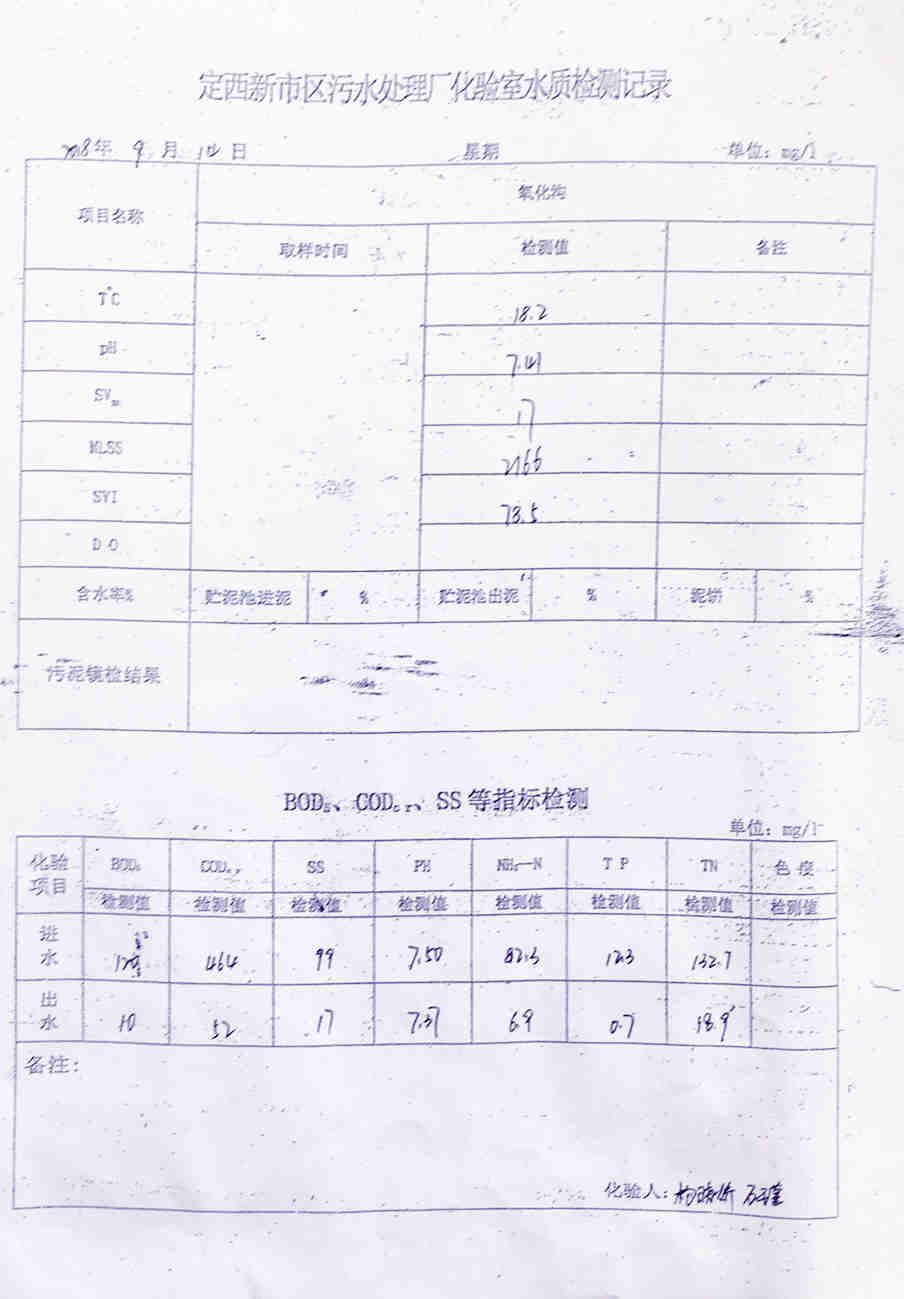 定西新市区污水处理厂化验室水质检测记录
2018年 9 月 14 日 星期 单位：mg/l
项目名称 氧化沟
取样时间 检测值 备注
T℃ 18.2
pH 7.41
SV₃₀ 17
MLSS 2166
SVI 78.5
D O
含水率% 贮泥池进泥 % 贮泥池出泥 % 泥饼 %
污泥镜检结果
BOD₅、CODcr、SS 等指标检测
单位：mg/l
化验项目 BOD₅ CODcr SS PH NH₃—N T P TN 色 度
检测值 检测值 检测值 检测值 检测值 检测值 检测值 检测值
进水 129 464 99 7.50 82.3 12.3 132.7
出水 10 52 17 7.37 6.9 0.7 18.9
备注：
化验人：